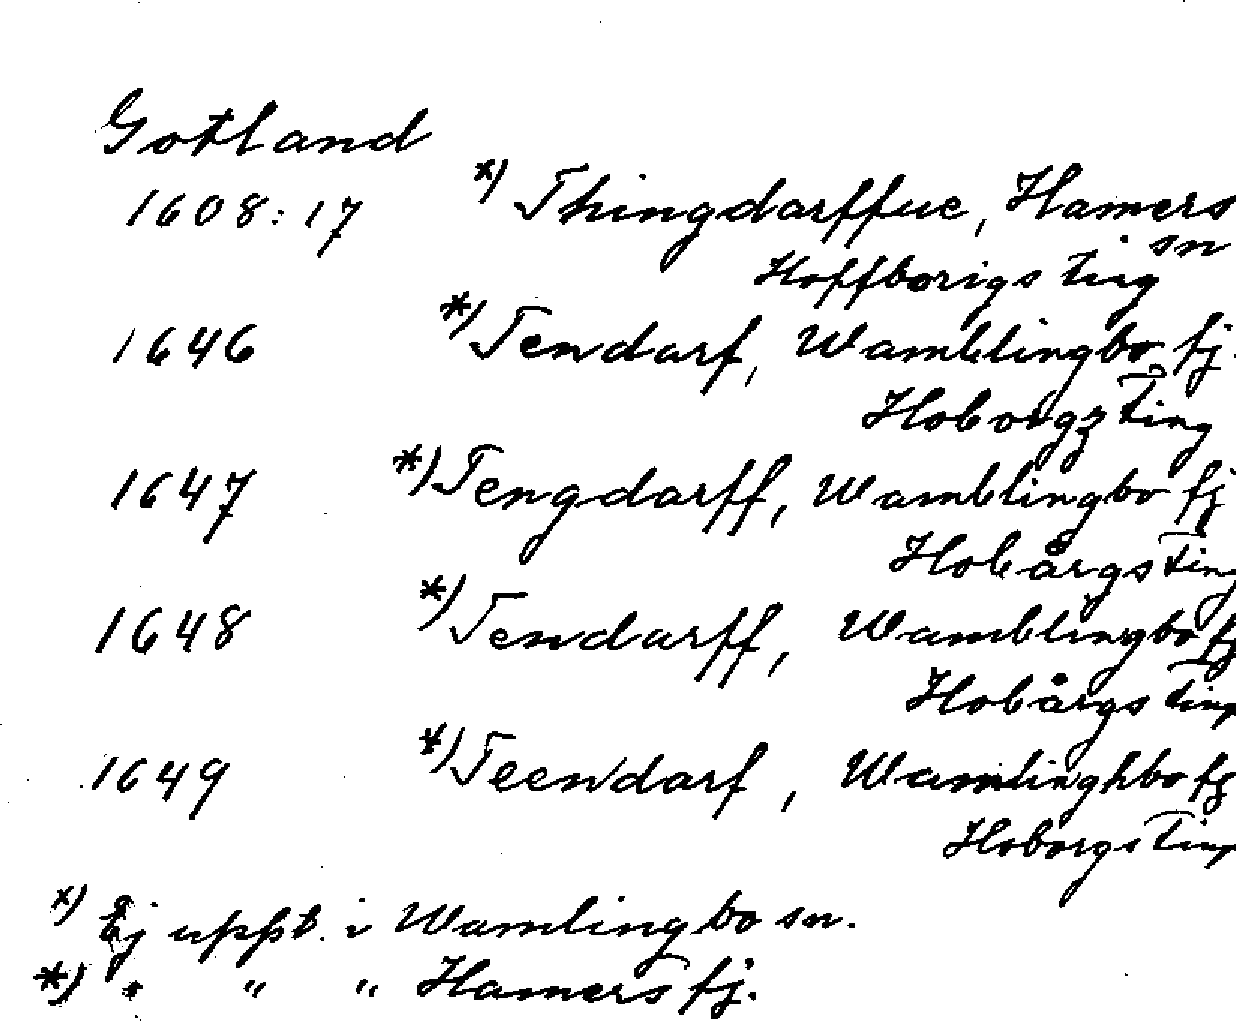 Gotland
1608:17 x) Thingdarffue, Hamers
sn
Hoffborigs ting
1646 *) Tendarf, Wamblingbo fj.
Hoborgz Ting
1647 *) Tengdarff, Wamblingbo fj
Hobårgs Ting
1648 *) Tendarff, Wamblingbo fj
Hobårgs Ting
1649 *) Teendarf, Wamlinghbo fj
Hoborgs Ting
x) Ej uppt. i Wamlingbo sn.
*) " " " Hamers fj.